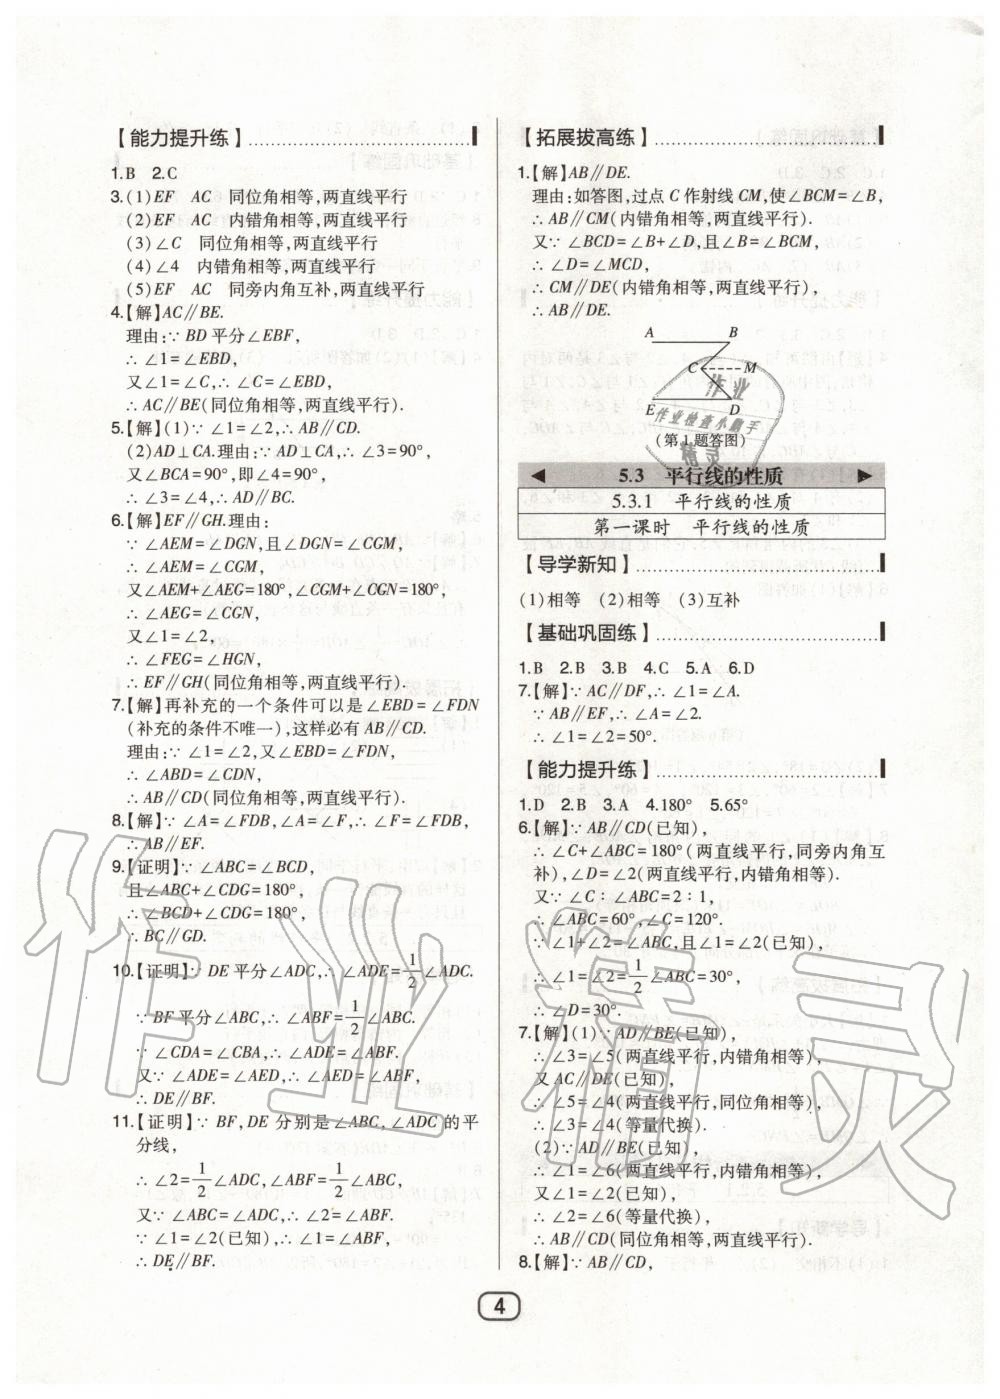 【能力提升练】
1.B　2.C
3.(1)EF　AC　同位角相等,两直线平行
(2)EF　AC　内错角相等,两直线平行
(3)∠C　同位角相等,两直线平行
(4)∠4　内错角相等,两直线平行
(5)EF　AC　同旁内角互补,两直线平行
4.【解】AC∥BE.
理由:∵BD平分∠EBF,
∴∠1=∠EBD,
又∠1=∠C,∴∠C=∠EBD,
∴AC∥BE(同位角相等,两直线平行).
5.【解】(1)∵∠1=∠2,∴AB∥CD.
(2)AD⊥CA.理由:∵AD⊥CA,∴∠3=90°,
又∠BCA=90°,即∠4=90°,
∴∠3=∠4,∴AD∥BC.
6.【解】EF∥GH.理由:
∵∠AEM=∠DGN,且∠DGN=∠CGM,
∴∠AEM=∠CGM,
又∠AEM+∠AEG=180°,∠CGM+∠CGN=180°,
∴∠AEG=∠CGN,
又∠1=∠2,
∴∠FEG=∠HGN,
∴EF∥GH(同位角相等,两直线平行).
7.【解】再补充的一个条件可以是∠EBD=∠FDN
(补充的条件不唯一),这样必有AB∥CD.
理由:∵∠1=∠2,又∠EBD=∠FDN,
∴∠ABD=∠CDN,
∴AB∥CD(同位角相等,两直线平行).
8.【解】∵∠A=∠FDB,∠A=∠F,∴∠F=∠FDB,
∴AB∥EF.
9.【证明】∵∠ABC=∠BCD,
且∠ABC+∠CDG=180°,
∴∠BCD+∠CDG=180°,
∴BC∥GD.
10.【证明】∵DE平分∠ADC,∴∠ADE=1/2∠ADC.
∵BF平分∠ABC,∴∠ABF=1/2∠ABC.
∵∠CDA=∠CBA,∴∠ADE=∠ABF.
又∵∠ADE=∠AED,∴∠AED=∠ABF,
∴DE∥BF.
11.【证明】∵BF,DE分别是∠ABC,∠ADC的平
分线,
∴∠2=1/2∠ADC,∠ABF=1/2∠ABC,
又∵∠ABC=∠ADC,∴∠2=∠ABF.
∵∠1=∠2(已知),∴∠1=∠ABF,
∴DE∥BF.
【拓展拔高练】
1.【解】AB∥DE.
理由:如答图,过点C作射线CM,使∠BCM=∠B,
∴AB∥CM(内错角相等,两直线平行).
又∵∠BCD=∠B+∠D,且∠B=∠BCM,
∴∠D=∠MCD,
∴CM∥DE(内错角相等,两直线平行),
∴AB∥DE.
A　B
C　M
E　D
(第1题答图)
5.3　平行线的性质
5.3.1　平行线的性质
第一课时　平行线的性质
【导学新知】
(1)相等　(2)相等　(3)互补
【基础巩固练】
1.B　2.B　3.B　4.C　5.A　6.D
7.【解】∵AC∥DF,∴∠1=∠A.
∵AB∥EF,∴∠A=∠2.
∴∠1=∠2=50°.
【能力提升练】
1.D　2.B　3.A　4.180°　5.65°
6.【解】∵AB∥CD(已知),
∴∠C+∠ABC=180°(两直线平行,同旁内角互
补),∠D=∠2(两直线平行,内错角相等).
又∵∠C∶∠ABC=2∶1,
∴∠ABC=60°,∠C=120°.
∵∠1+∠2=∠ABC,且∠1=∠2(已知),
∴∠1=∠2=1/2∠ABC=30°,
∴∠D=30°.
7.【解】(1)∵AD∥BE(已知),
∴∠3=∠5(两直线平行,内错角相等),
又AC∥DE(已知),
∴∠5=∠4(两直线平行,同位角相等),
∴∠3=∠4(等量代换).
(2)∵AD∥BE(已知),
∴∠1=∠6(两直线平行,内错角相等),
又∠1=∠2(已知),
∴∠2=∠6(等量代换),
∴AB∥CD(同位角相等,两直线平行).
8.【解】∵AB∥CD,
4
作业
作业检查小帮手
精灵
作业精灵